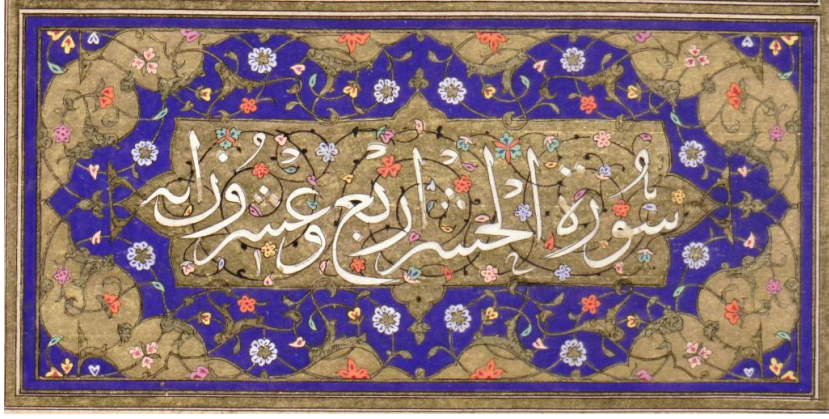 سُورَةُ الْحَشْرِ اَرْبَعٌ وَعِشْرُونَ اٰيَه